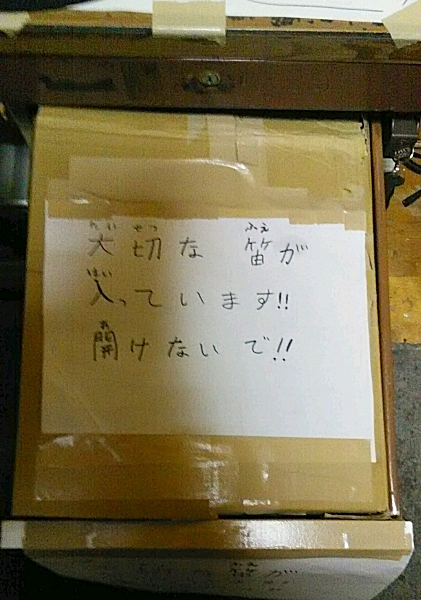 たい せつ ふえ
大切な 笛が
はい
入っています!!
あ
開けないで!!
笛が